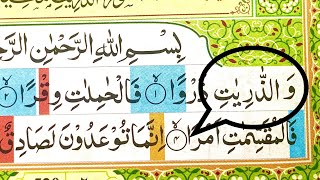 بِسْمِ اللّٰهِ الرَّحْمٰنِ الرَّحِ
وَالذّٰرِيٰتِ ذَرْوًا ۙ﴿۱﴾ فَالْحٰمِلٰتِ وِقْرًا ۙ﴿۲﴾
فَالْمُقَسِّمٰتِ اَمْرًا ۙ﴿۴﴾ اِنَّمَا تُوْعَدُوْنَ لَصَادِقٌ